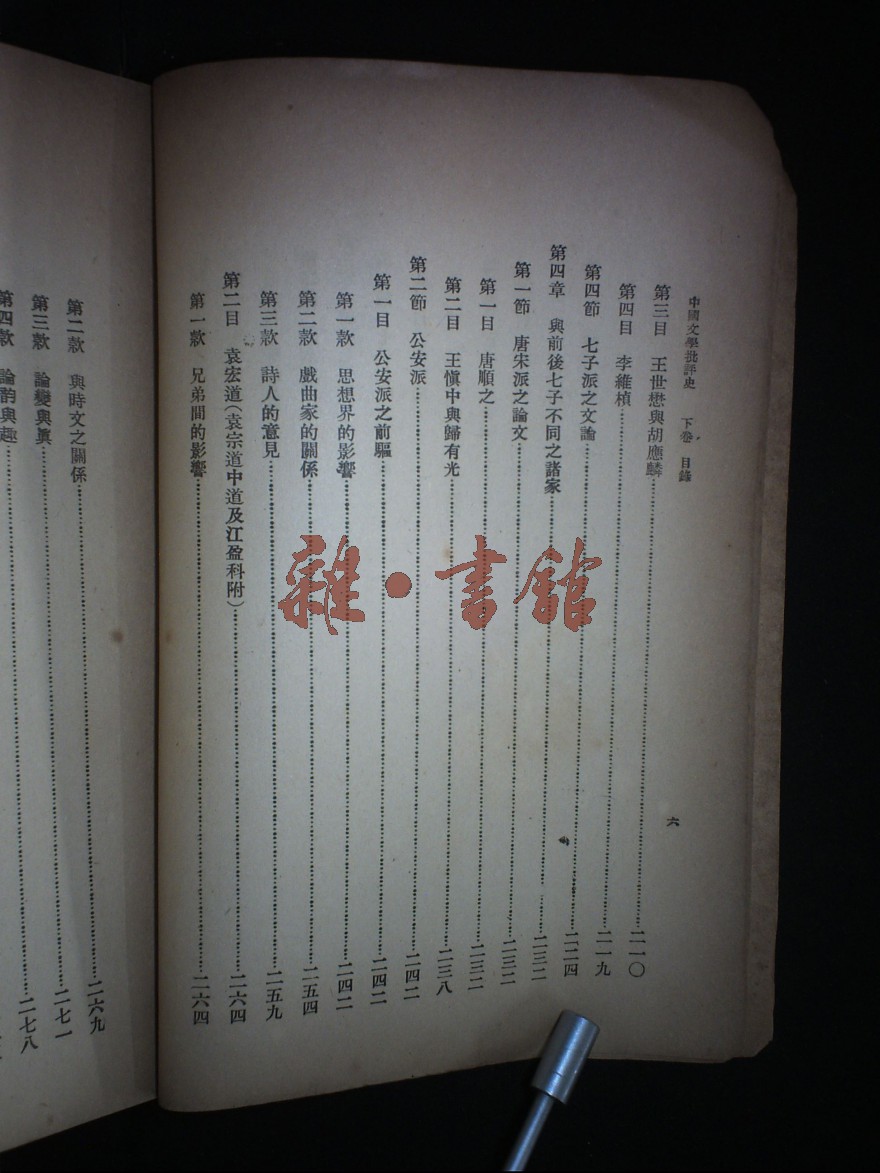 中國文學批評史　下卷　目錄
六
第三目　王世懋與胡應麟……二一〇
第四目　李維楨……二一九
第四節　七子派之文論……二二四
第四章　與前後七子不同之諸家……二三二
第一節　唐宋派之論文……二三二
第一目　唐順之……二三二
第二目　王愼中與歸有光……二三八
第二節　公安派……二四二
第一目　公安派之前驅……二四二
第一款　思想界的影響……二四二
第二款　戲曲家的關係……二五四
第三款　詩人的意見……二五九
第二目　袁宏道（袁宗道中道及江盈科附）……二六四
第一款　兄弟間的影響……二六四
第二款　與時文之關係……二六九
第三款　論變與眞……二七一
第四款　論韵與趣……二七八
雜·書館